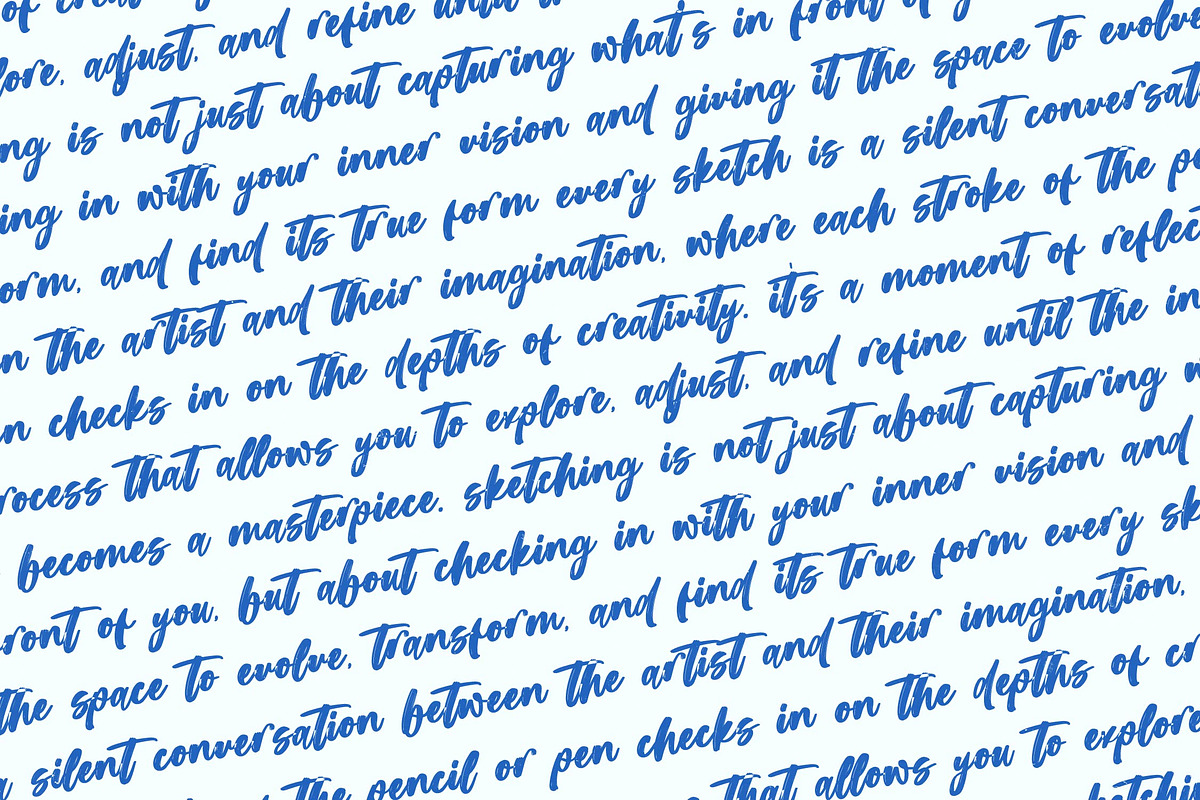 of creativ
lore, adjust, and refine until
ng is not just about capturing what's in front of
ing in with your inner vision and giving it the space to evolve
orm, and find its true form every sketch is a silent conversat
n the artist and their imagination, where each stroke of the pe
n checks in on the depths of creativity. it's a moment of reflec
rocess that allows you to explore, adjust, and refine until the in
becomes a masterpiece. sketching is not just about capturing w
ront of you, but about checking in with your inner vision and
the space to evolve, transform, and find its true form every sk
a silent conversation between the artist and their imagination,
the pencil or pen checks in on the depths of cr
that allows you to explore